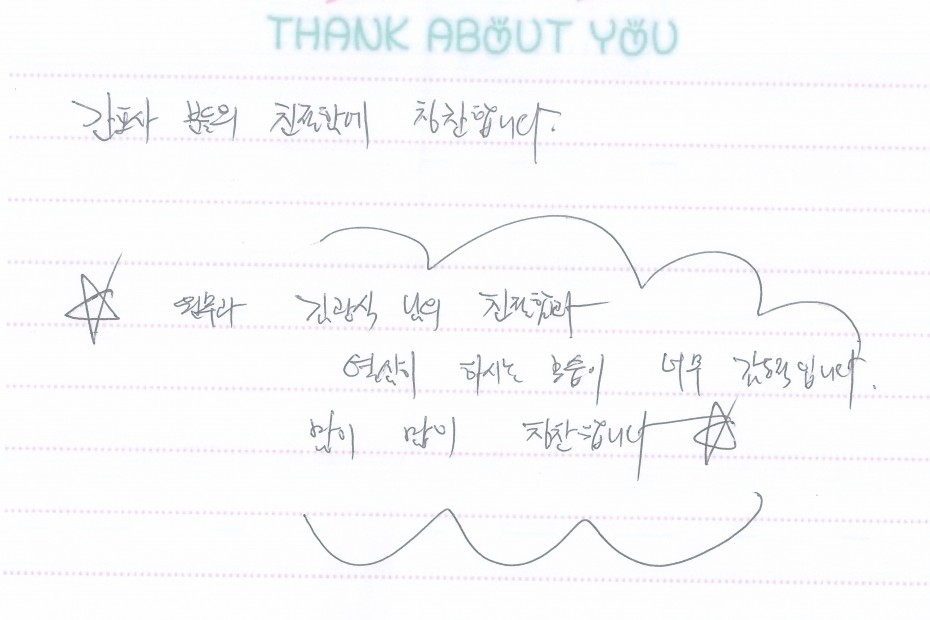 THANK ABOUT YOU
간호사 분들의 친절함에 칭찬합니다.
원무과 김관식 님의 친절함과
열심히 하시는 모습이 너무 감동적입니다.
많이 많이 칭찬합니다